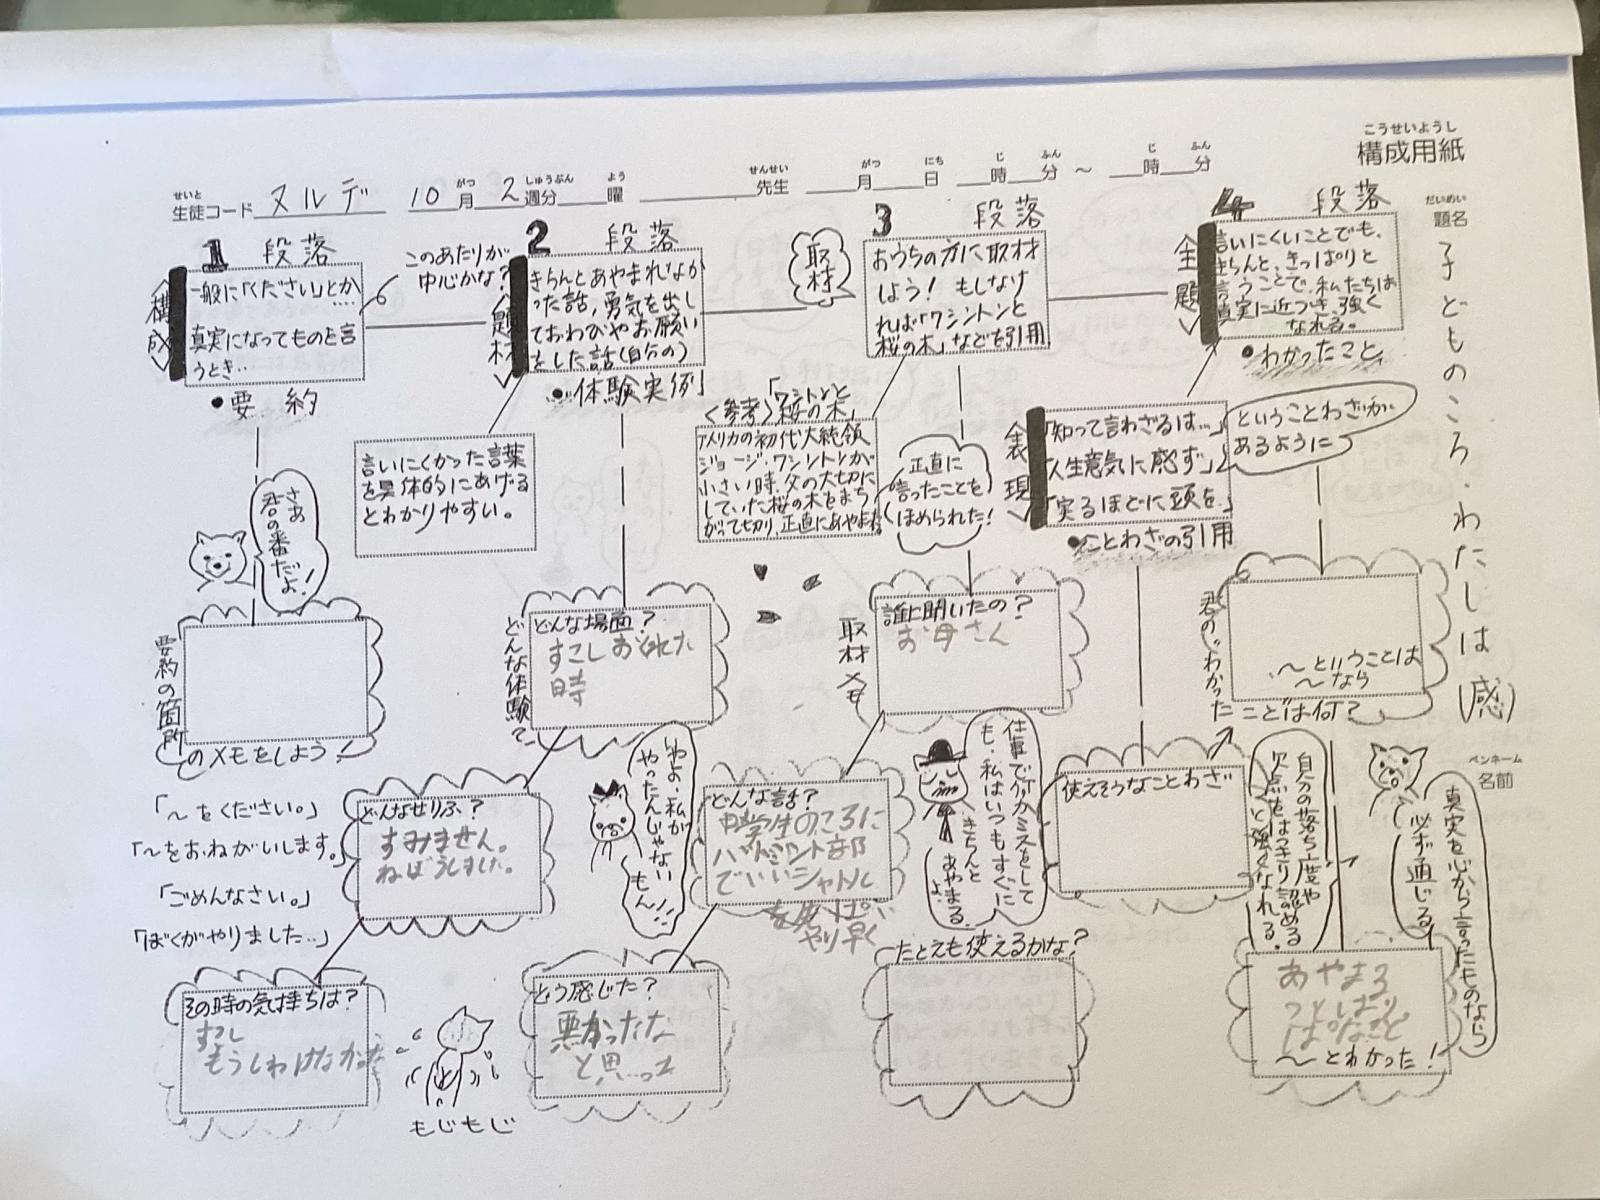 こうせいようし
構成用紙
せいと
生徒コード ヌルデ 10 がつ月 2 しゅうぶん週分 よう曜 せんせい先生 がつ月 にち日 じ時 ふん分 ～ じ時 ふん分
だいめい
題名
子どものころ・わたしは(感)
ペンネーム
名前
1 段落
〈構成〉
一般に「ください」とか
真実になってものを言
うとき‥
●要約
このあたりが
中心かな?
2 段落
〈全題材〉
きちんとあやまれなか
った話,勇気を出し
ておわびやお願い
をした話(自分の)
●「体験実例」
取材
3 段落
おうちの方に取材
しよう! もしなけ
れば「ワシントンと
桜の木」などを引用
4 段落
〈全題〉
言いにくいことでも、
きちんと、きっぱりと
言うことで、私たちは
真実に近づき、強く
なれる。
●わかったこと
言いにくかった言葉
を具体的にあげる
とわかりやすい。
〈参考〉「ワシントンと
桜の木」
アメリカの初代大統領
ジョージ・ワシントンが
小さい時、父の大切に
していた桜の木をまち
がって切り,正直にあやまる
正直に
言ったことを
ほめられた!
〈全表現〉
「知って言わざるは…」
「人生意気に感ず」
「実るほどに頭を」
●ことわざの引用
ということわざが
あるように
さあ
君の番だよ!
要約の箇所
のメモをしよう!
どんな体験で
どんな場面?
すこしおくれた
時
取材メモ
誰に聞いたの?
お母さん
君の"わかった
ことは何?
～ということは
～なら
「～をください。」
「～をおねがいします。」
「ごめんなさい。」
「ぼくがやりました‥」
どんなせりふ?
すみません。
ねぼうしました。
わよ、私が
やったんじゃない
もん!!
どんな話?
中学生のころに
バトミントン部
でいいシャトル
やり早く
仕事で何かミスをして
も、私はいつもすぐに
きちんと
あやまる
よ。
使えそうなことわざ
自分の落ち度や
欠点をはっきり認める
と強くなれる。
真実を心から言ったものなら
必ず通じる
その時の気持ちは?
すこし
もうしわけなかった
もじもじ
どう感じた?
悪かったな
と思った
たとえも使えるかな?
あやまる
～とわかった!